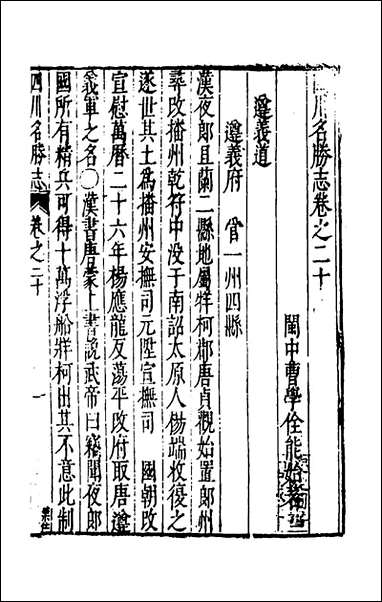 四川名勝志卷之二十
閩中曹學佺能始著
遵義道
遵義府　管一州四縣
漢夜郎且蘭二縣地屬牂柯郡唐貞觀始置郎州
尋改播州乾符中没于南詔太原人楊端收復之
遂世其土為播州安撫司元陞宣撫司　國朝改
宣慰萬曆二十六年楊應龍反蕩平改府取唐遵
義軍之名○漢書唐蒙上書說武帝曰竊聞夜郎
國所有精兵可得十萬浮船牂柯出其不意此制
四川名勝志　卷之二十　一